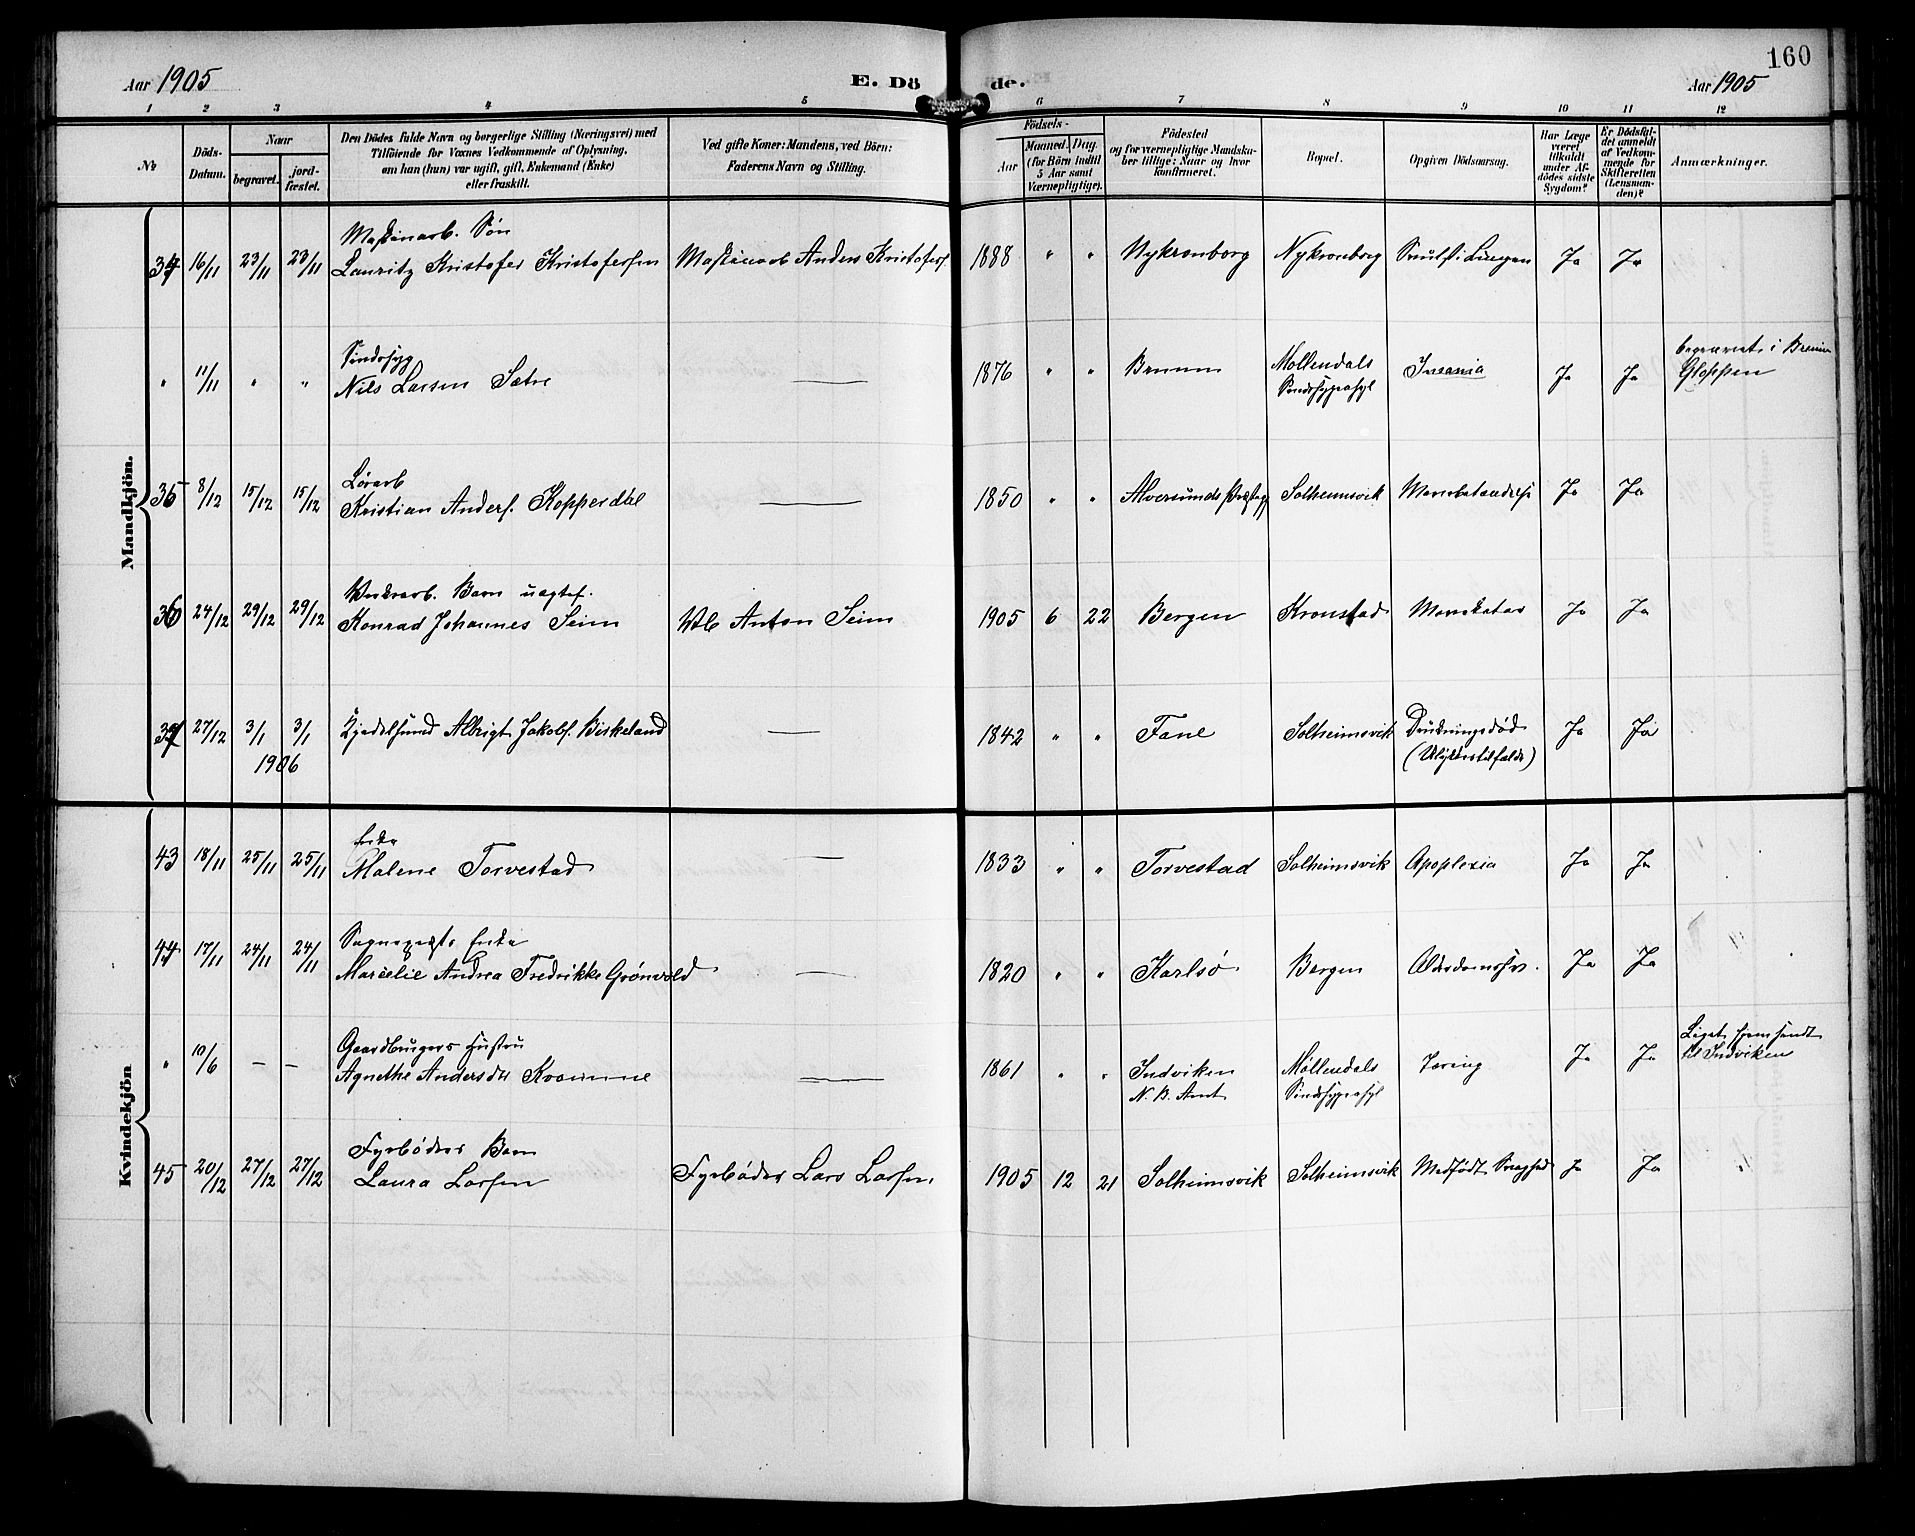 160
Aar 1905
E. Dö de.
Aar 1905
1 2 3 4 5 6 7 8 9 10 11 12
No
Döds-Datum.
Naar
begravet.
jord-fæstet.
Den Dödes fulde Navn og borgerlige Stilling (Næringsvei) med
Tilföiende for Voxnes Vedkommende af Oplysning,
om han (hun) var ugift, gift, Enkemand (Enke)
eller fraskilt.
Ved gifte Koner: Mandens, ved Börn:
Faderens Navn og Stilling.
Födsels-
Aar
Maaned. Dag.
(for Börn indtil
5 Aar samt
Værnepligtige).
Födested
og for værnepligtige Mandska-
ber tillige: Naar og hvor
konfirmeret.
Bopæl.
Opgiven Dödsaarsag.
Har Læge
været
tilkaldt
under Af-
dödes sidste
Sygdom?
Er Dödsfal-
det anmeldt
af Vedkom-
mende for
Skifteretten
(Lensman-
den)?
Anmærkninger.
Mandkjön.
Maskinarb. Søn
34 16/11 23/11 23/11 Lauritz Kristofer Kristofersen Maskinarb Anders Kristofers. 1888 " " Nykronborg Nykronborg Ja Ja
Sindssyg
" 11/11 " " Nils Larsen Sætre — 1876 " " Møllendals Sindssygeasyl Insania Ja Ja begravet i Breim Gloppen
Lørarb
35 8/12 15/12 15/12 Kristian Anders. Kopperdal — 1850 " " Alversunds Solheimsvik Ja Ja
Barn uægtef.
36 24/12 29/12 29/12 Konrad Johannes Seim Anton Seim 1905 6 22 Bergen Kronstad Ja Ja
37 27/12 3/1 3/1 Albrigt Jakobs. Birkeland — 1842 " " Fane Solheimsvik Drukningsdød Ja Ja
1906
(Ulykkestilfælde)
Kvindekjön
Enke
43 18/11 25/11 25/11 Malene Torvestad — 1833 " " Torvestad Solheimsvik Apoplexia Ja Ja
Sogneprests Enke
44 17/11 24/11 24/11 Marcelie Andrea Fredrikke Grönvold — 1820 " " Karlsö Bergen Ja Ja
Gaardbrugers Hustru
" 10/6 — — Agnethe Andersdtr Kvamme — 1861 " " Indviken Møllendals Tæring Ja Ja Liget hjemsendt
N. B. Amt Sindssygeasyl til Indviken
Fyrbøders Barn
45 20/12 27/12 27/12 Laura Larsen Fyrbøder Lars Larsen. 1905 12 21 Solheimsvik Solheimsvik Medfødt Svaghed Ja Ja